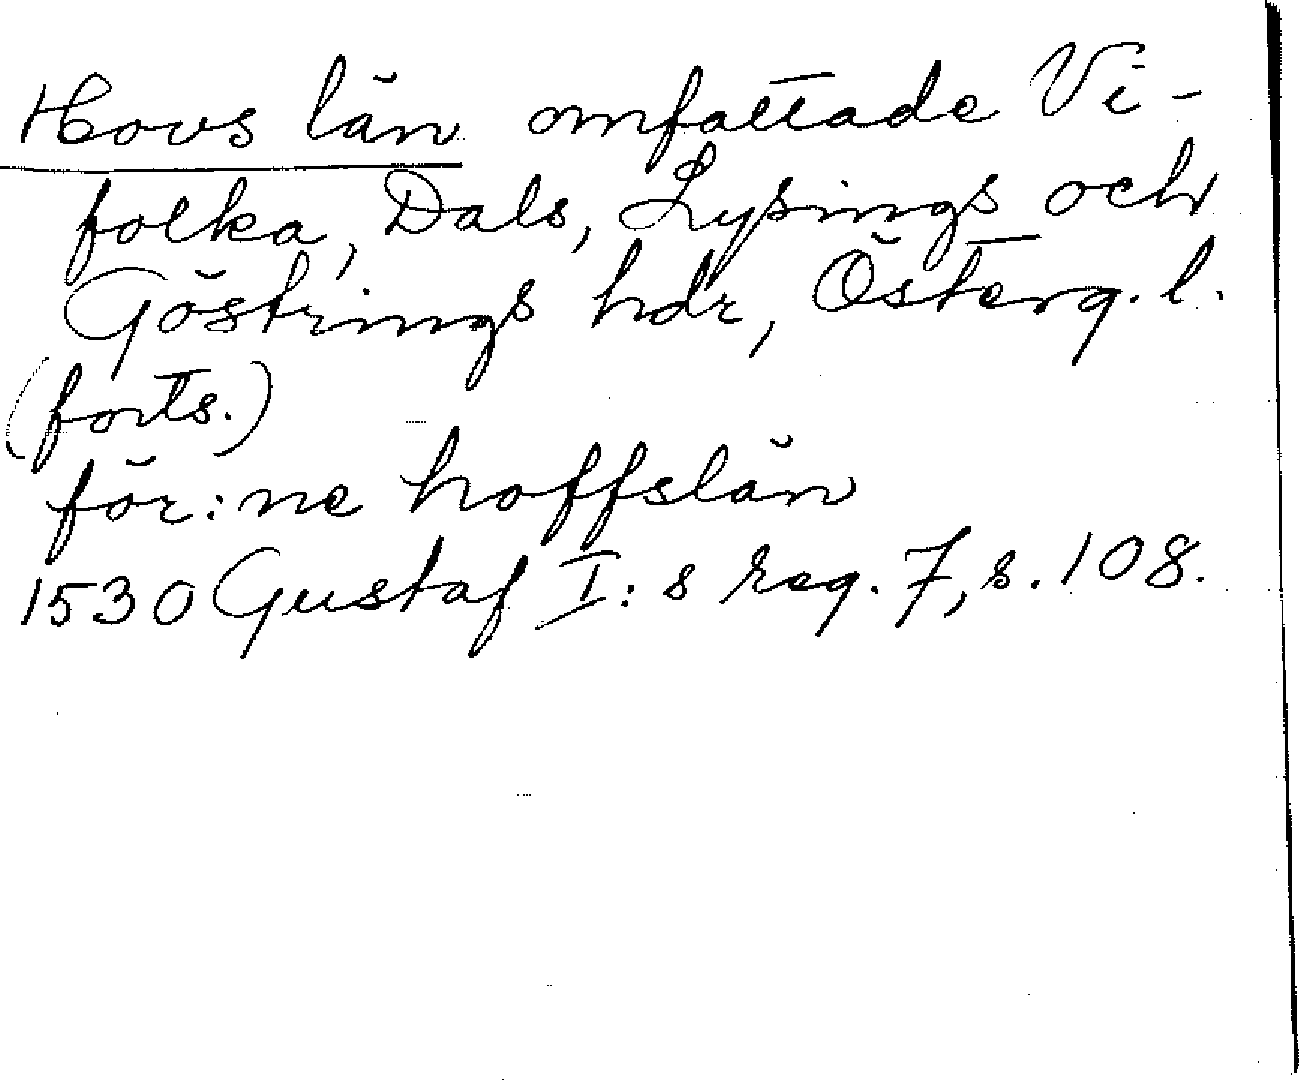 Hovs län omfattade Vi-
folka, Dals, Lysings och
Göstrings hdr, Österg. l.
(forts.)
för:ne hoffslän
1530 Gustaf I:s reg. 7, s. 108.